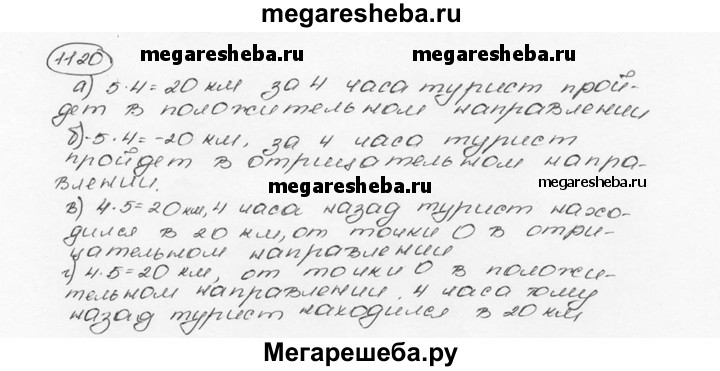 megaresheba.ru
1120
megaresheba.ru megaresheba.ru
а) 5·4=20 км за 4 часа турист прой-
дет в положительном направлении
б)-5·4=-20 км, за 4 часа турист
пройдет в отрицательном напра-
влении.
megaresheba.ru megaresheba.ru
в) 4·5=20км,4 часа назад турист нахо-
дился в 20 км,от точки О в отри-
цательном направлении
г) 4·5=20 км, от точки О в положи-
тельном направлении, 4 часа тому
назад турист находился в 20 км
Мегарешеба.ру